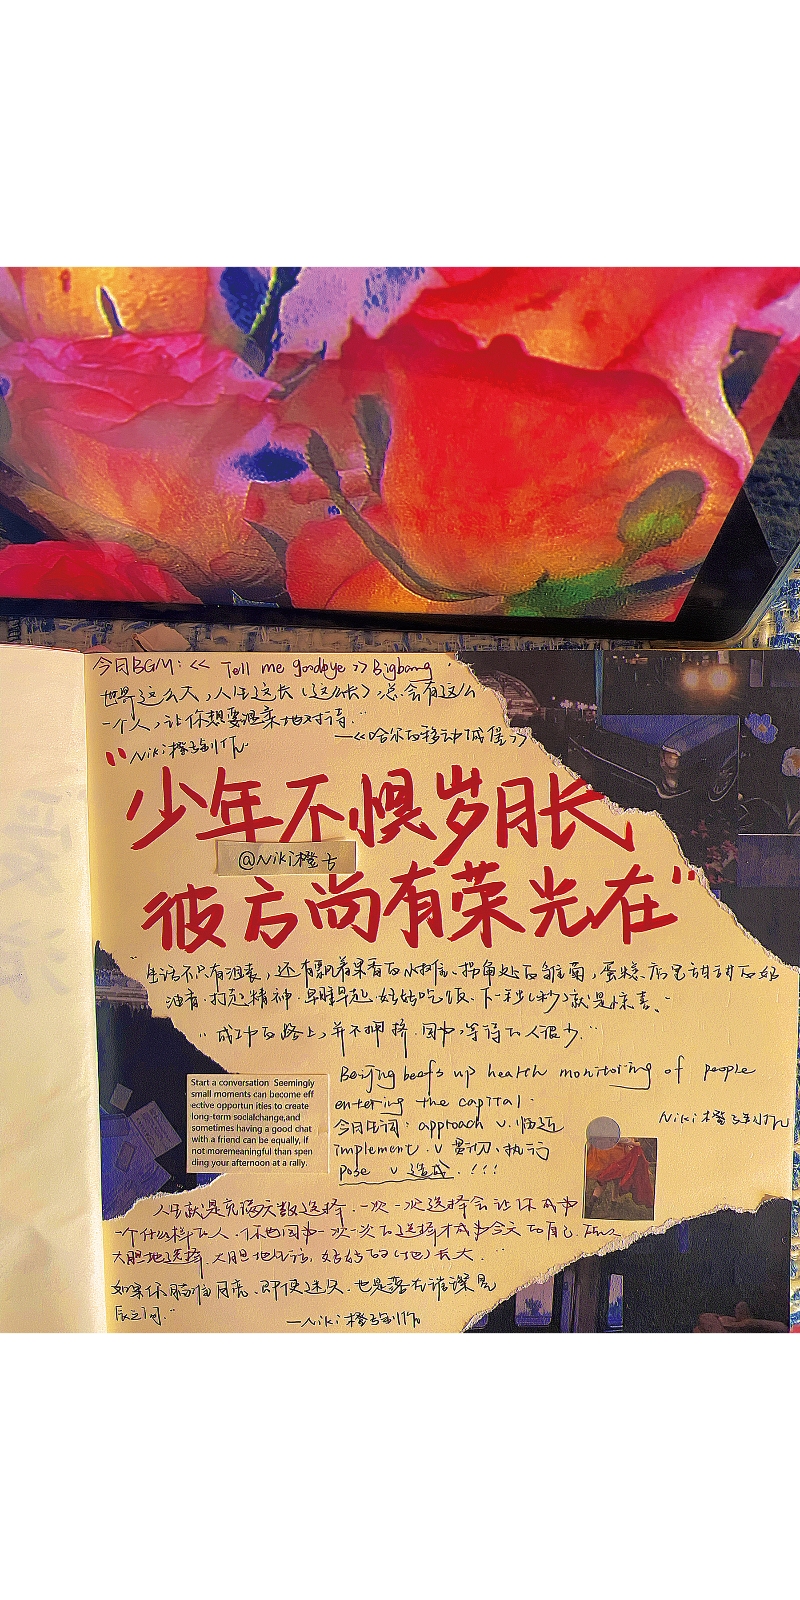 今日BGM：<< Tell me goodbye >> Bigbang
世界这么大，人生这长（这么长），总会有这么
一个人，让你想要温柔地对待.”
—《哈尔的移动城堡》
Niki橙子制作
“少年不惧岁月长，
@Niki橙子
彼方尚有荣光在”
“生活不只有沮丧，还有飘着果香的水信、拐角处的雏菊，蛋糕店里甜甜的奶
油香.打起精神.早睡早起.好好吃饭.下一秒（秒）就是惊喜.”
“成功的路上，并不拥挤.因为，等待的人很少.”
Beijing beefs up health monitoring of people
entering the capital.
今日生词：approach v.临近
Niki橙子制作
implement.v 贯彻、执行
pose v 造成.!!!
Start a conversation Seemingly
small moments can become eff
ective opportun ities to create
long-term socialchange,and
sometimes having a good chat
with a friend can be equally, if
not moremeaningful than spen
ding your afternoon at a rally.
人生就是充满无数选择.一次一次选择会让你成为
一个什么样的人.你也因为一次一次的选择才成为今天的自己.所以
大胆地选择.大胆地生活，好好的（地）长大.”
如果你瞄准月亮、即使迷失.也是落在星
辰之间.”
—Niki橙子制作